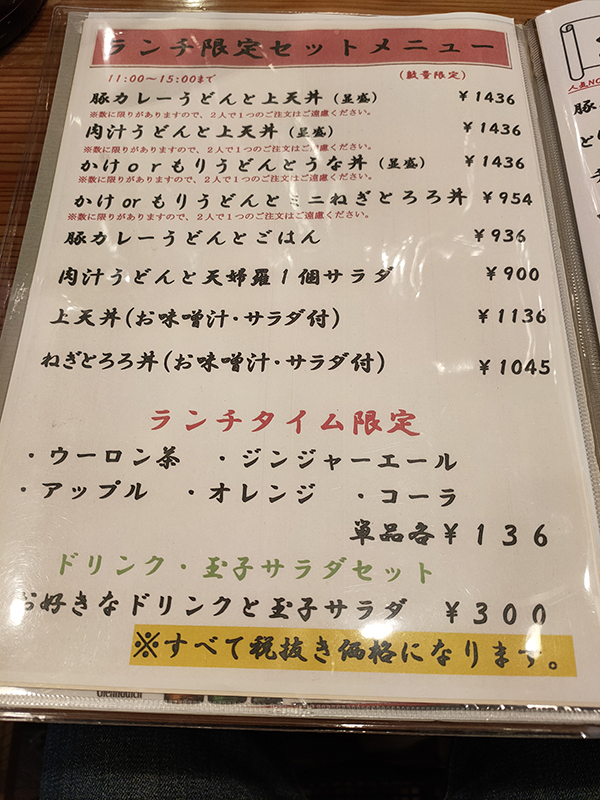 ランチ限定セットメニュー
11:00〜15:00まで
(数量限定)
豚カレーうどんと上天丼(並盛) ¥1436
※数に限りがありますので、2人で1つのご注文はご遠慮ください。
肉汁うどんと上天丼(並盛) ¥1436
※数に限りがありますので、2人で1つのご注文はご遠慮ください。
かけorもりうどんとうな丼(並盛) ¥1436
※数に限りがありますので、2人で1つのご注文はご遠慮ください。
かけorもりうどんとミニねぎとろろ丼 ¥954
※数に限りがありますので、2人で1つのご注文はご遠慮ください。
豚カレーうどんとごはん ¥936
肉汁うどんと天婦羅1個サラダ ¥900
上天丼(お味噌汁・サラダ付) ¥1136
ねぎとろろ丼(お味噌汁・サラダ付) ¥1045
ランチタイム限定
・ウーロン茶 ・ジンジャーエール
・アップル ・オレンジ ・コーラ
単品各¥136
ドリンク・玉子サラダセット
お好きなドリンクと玉子サラダ ¥300
※すべて税抜き価格になります。
人気NO
豚